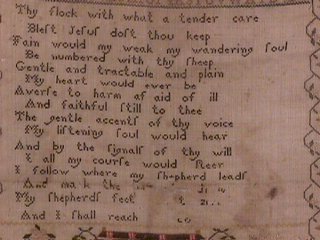 Thy flock with what a tender care
Bleſt Jeſuſ doſt thou keep
Fain would my weak my wandering ſoul
Be numbered with thy ſheep
Gentle and tractable and plain
My heart would ever be
Averſe to harm aſ aid of ill
And faithful ſtill to thee
The gentle accentſ of thy voice
My liſtening ſoul would hear
And by the ſignalſ of thy will
I all my courſe would ſteer
I follow where my ſhepherd leadſ
And mark the
My ſhepherdſ feet
And I ſhall reach